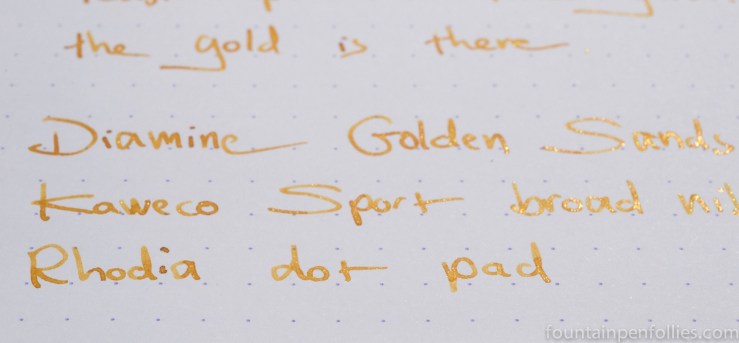 the gold is there
Diamine Golden Sands
Kaweco Sport broad nib
Rhodia dot pad
fountainpenfollies.com